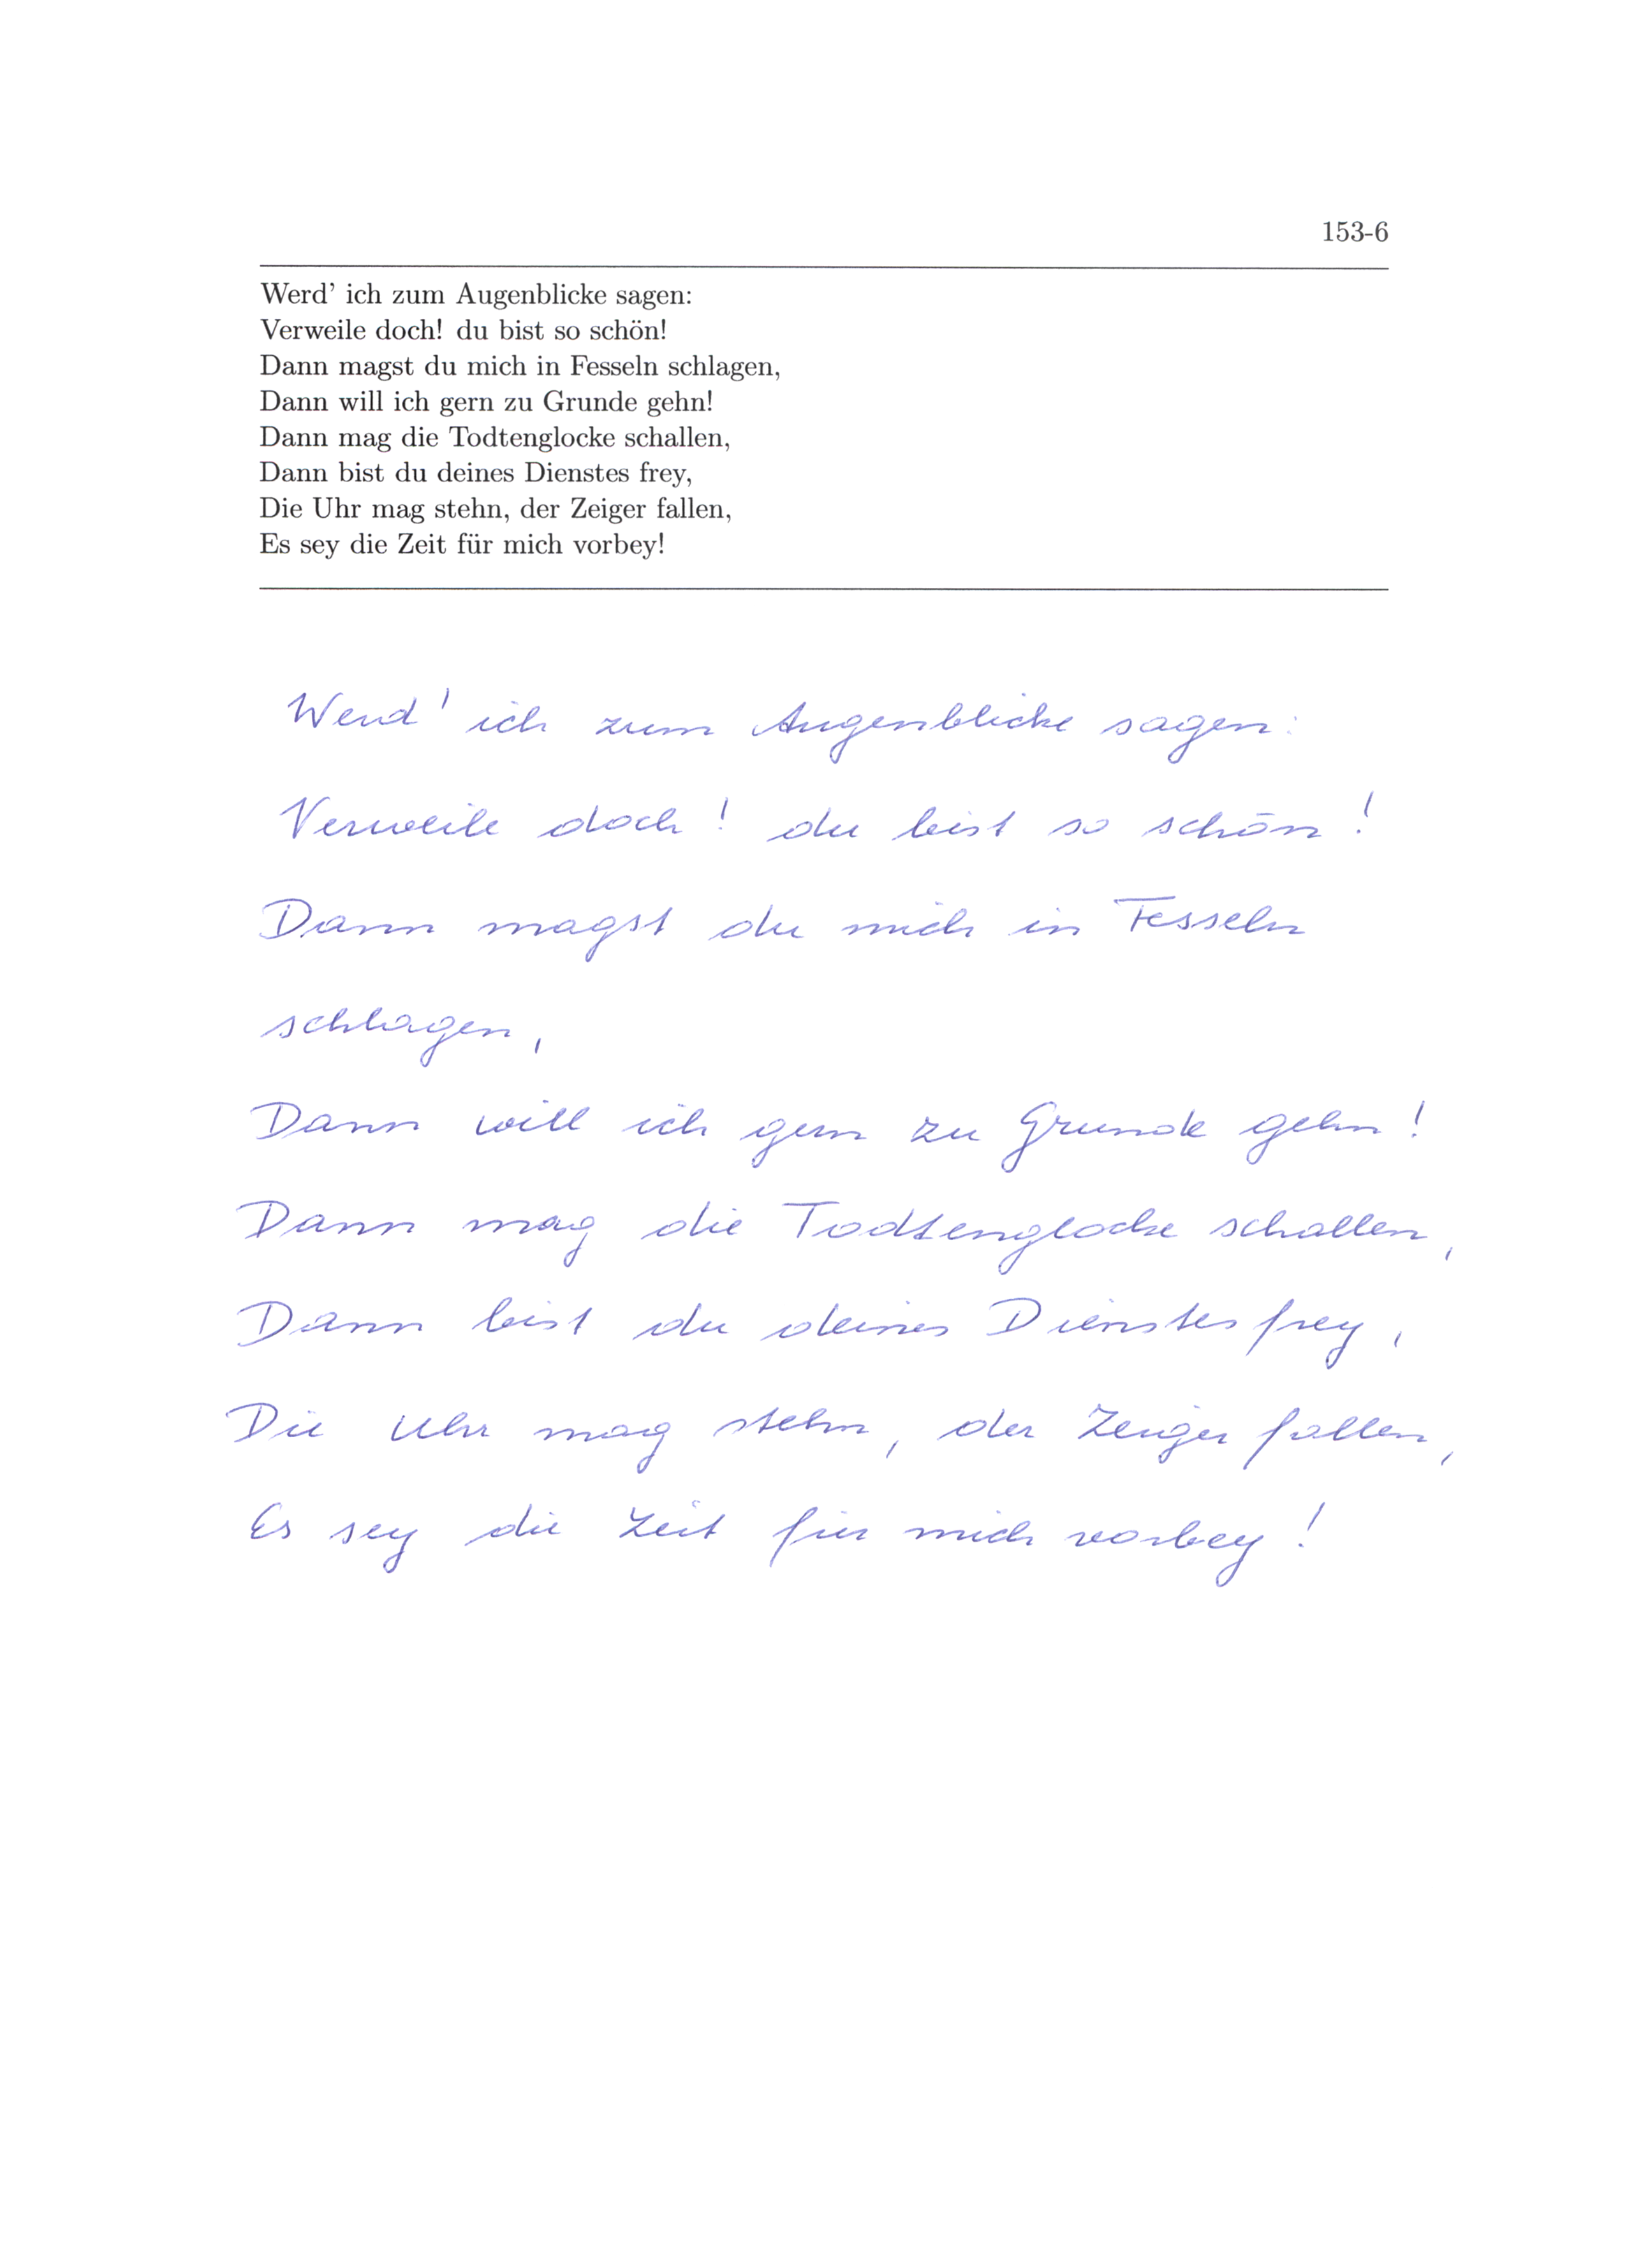 153-6
Werd' ich zum Augenblicke sagen:
Verweile doch! du bist so schön!
Dann magst du mich in Fesseln schlagen,
Dann will ich gern zu Grunde gehn!
Dann mag die Todtenglocke schallen,
Dann bist du deines Dienstes frey,
Die Uhr mag stehn, der Zeiger fallen,
Es sey die Zeit für mich vorbey!
Werd' ich zum Augenblicke sagen:
Verweile doch! du bist so schön!
Dann magst du mich in Fesseln
schlagen,
Dann will ich gern zu Grunde gehn!
Dann mag die Todtenglocke schallen,
Dann bist du deines Dienstes frey,
Die Uhr mag stehn, der Zeiger fallen,
Es sey die Zeit für mich vorbey!